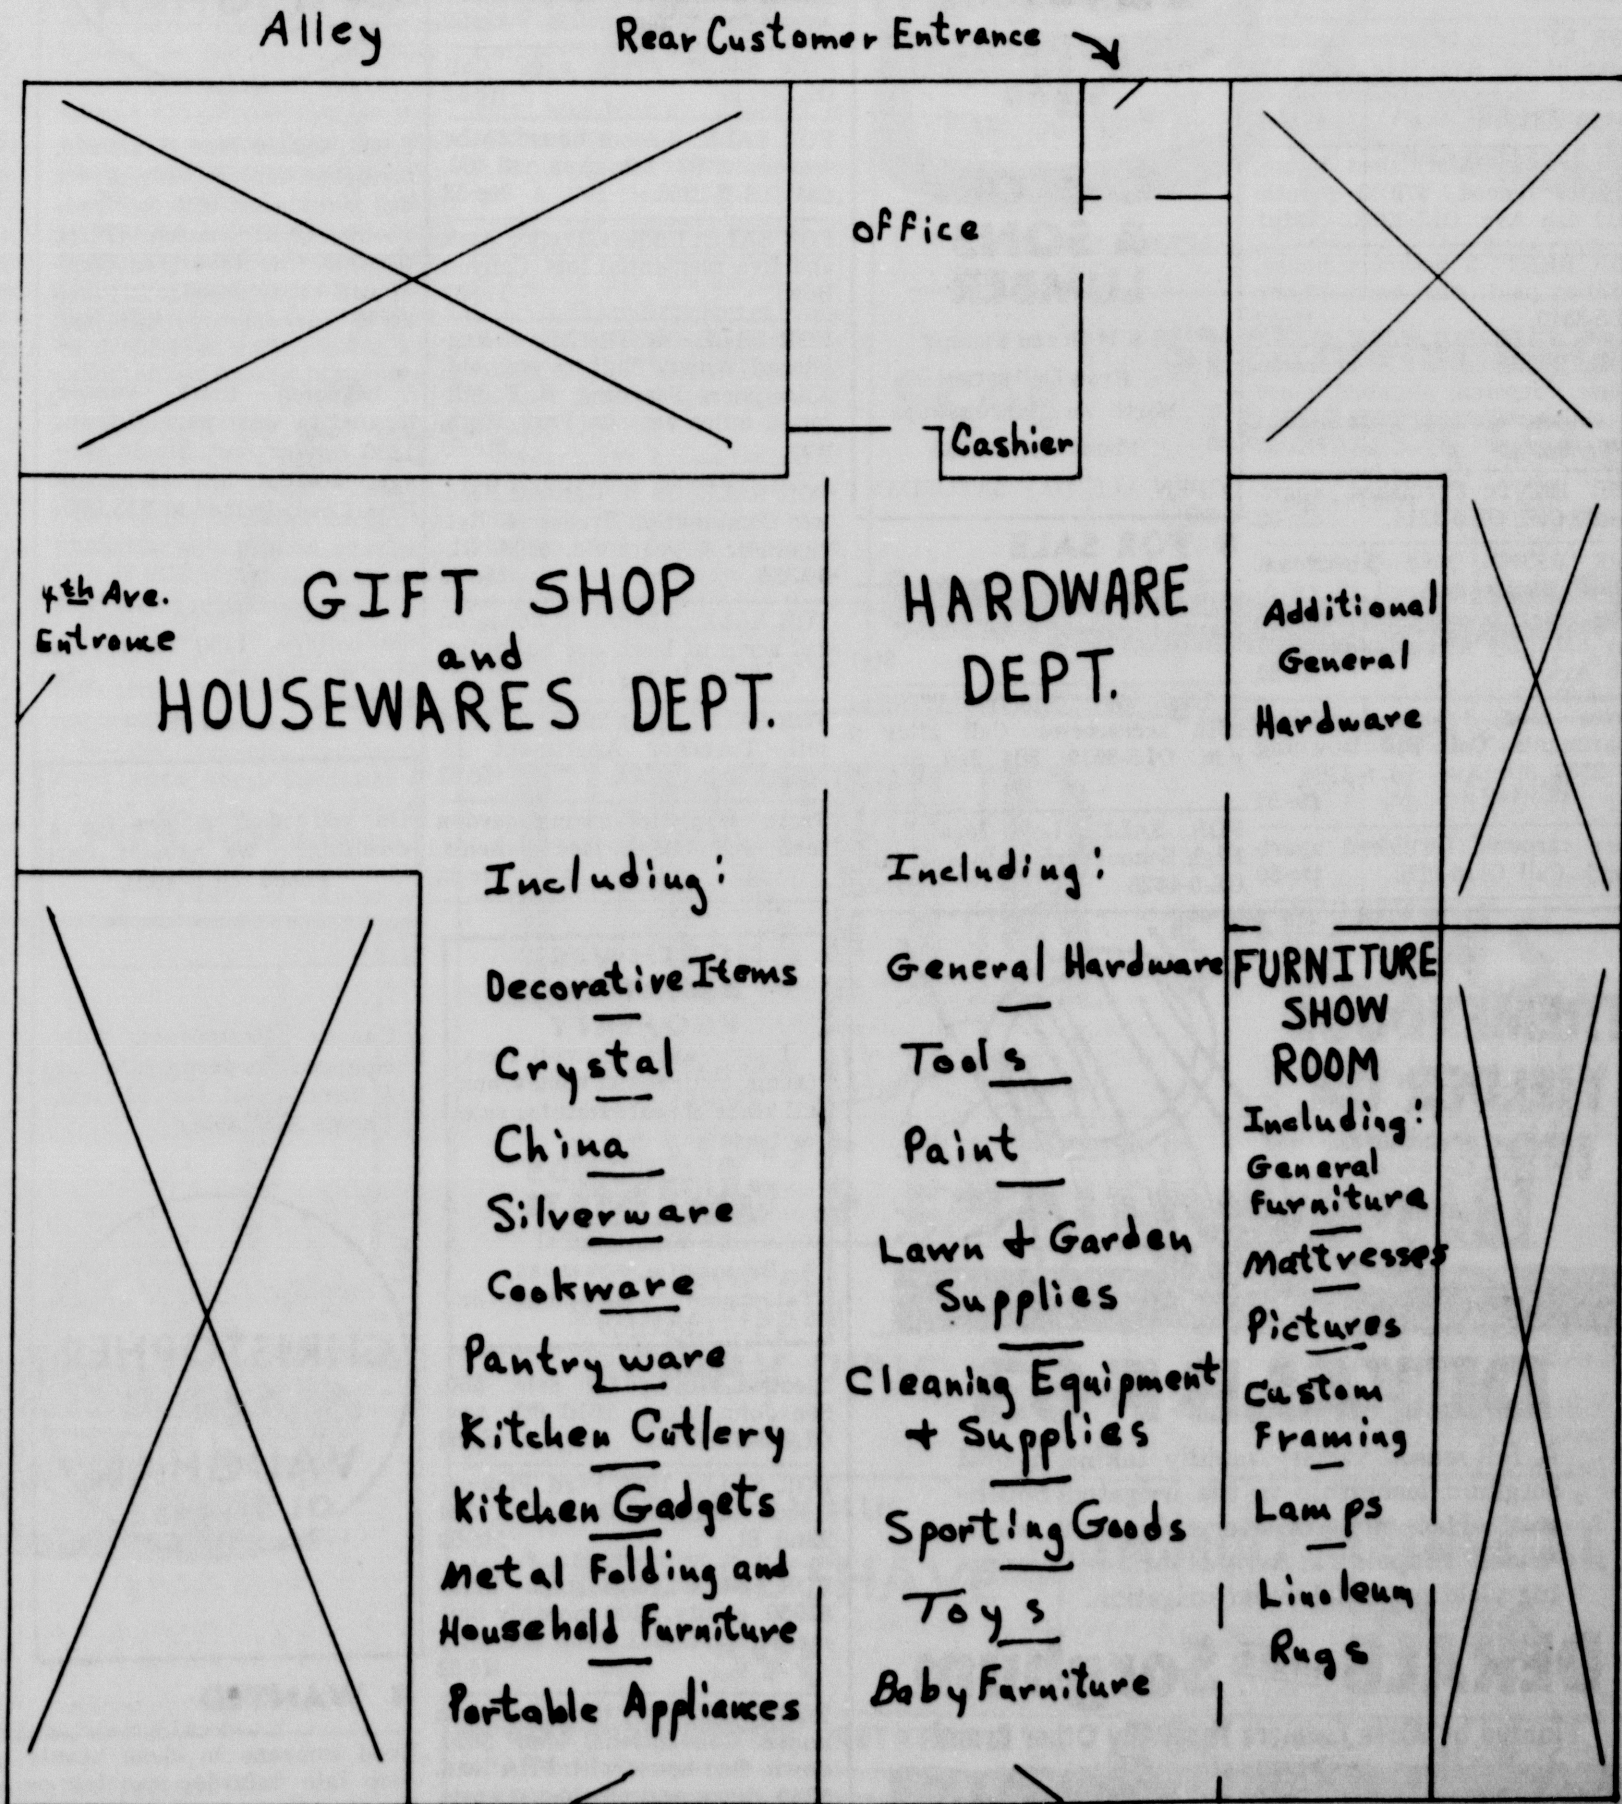 Alley
Rear Customer Entrance
office
Cashier
4th Ave.
Entrance
GIFT SHOP
and
HOUSEWARES DEPT.
Including:
Decorative Items
Crystal
China
Silverware
Cookware
Pantry ware
Kitchen Cutlery
Kitchen Gadgets
Metal Folding and
Household Furniture
Portable Appliances
HARDWARE
DEPT.
Including:
General Hardware
Tools
Paint
Lawn + Garden
Supplies
Cleaning Equipment
+ Supplies
Sporting Goods
Toys
Baby Furniture
Additional
General
Hardware
FURNITURE
SHOW
ROOM
Including:
General
Furniture
Mattresses
Pictures
Custom
Framing
Lamps
Linoleum
Rugs